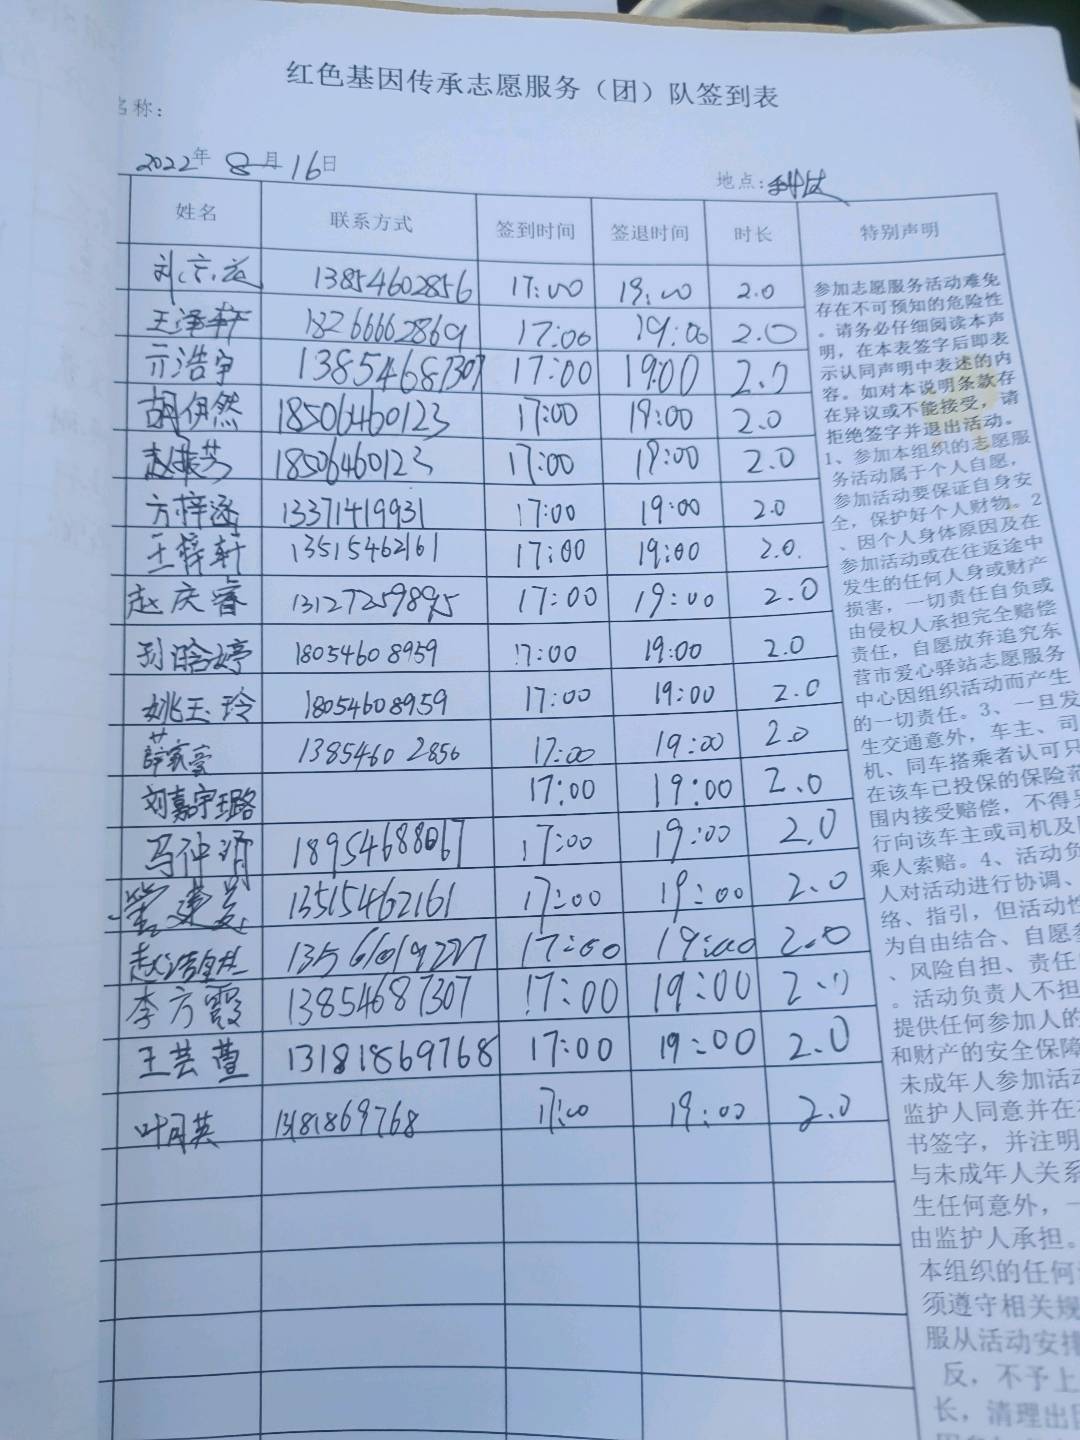 红色基因传承志愿服务（团）队签到表
名称：
2022年 8月 16日 地点：
姓名 联系方式 签到时间 签退时间 时长 特别声明
13854602856 17:00 19:00 2.0
王泽轩 18266662869 17:00 19:00 2.0
亓浩宇 13854687307 17:00 19:00 2.0
胡伊然 18506460123 17:00 19:00 2.0
赵振芳 18506460123 17:00 19:00 2.0
方梓涵 13371419931 17:00 19:00 2.0
王梓轩 13515462161 17:00 19:00 2.0.
赵庆睿 13127259895 17:00 19:00 2.0
孙晗婷 18054608959 17:00 19:00 2.0
姚玉玲 18054608959 17:00 19:00 2.0
薛家豪 13854602856 17:00 19:00 2.0
刘嘉宇璐 17:00 19:00 2.0
马仲 18954688067 17:00 19:00 2.0
13515462161 17:00 19:00 2.0
赵 17:00 19:00 2.0
李方霞 13854687307 17:00 19:00 2.0
王芸萱 13181869768 17:00 19:00 2.0
叶月英 13181869768 17:00 19:00 2.0
参加志愿服务活动难免
存在不可预知的危险性
。请务必仔细阅读本声
明，在本表签字后即表
示认同声明中表述的内
容。如对本说明条款存
在异议或不能接受，请
拒绝签字并退出活动。
1、参加本组织的志愿服
务活动属于个人自愿，
参加活动要保证自身安
全，保护好个人财物。2
、因个人身体原因及在
参加活动或在往返途中
发生的任何人身或财产
损害，一切责任自负或
由侵权人承担完全赔偿
责任，自愿放弃追究东
营市爱心驿站志愿服务
中心因组织活动而产生
的一切责任。3、一旦发
生交通意外，车主、司
机、同车搭乘者认可只
在该车已投保的保险范
围内接受赔偿，不得另
行向该车主或司机及同
乘人索赔。4、活动负
人对活动进行协调、
络、指引，但活动性
为自由结合、自愿参
、风险自担、责任
。活动负责人不担
提供任何参加人的
和财产的安全保障
未成年人参加活动
监护人同意并在
书签字，并注明
与未成年人关系
生任何意外，一
由监护人承担。
本组织的任何
须遵守相关规
服从活动安排
反，不予上
长，清理出